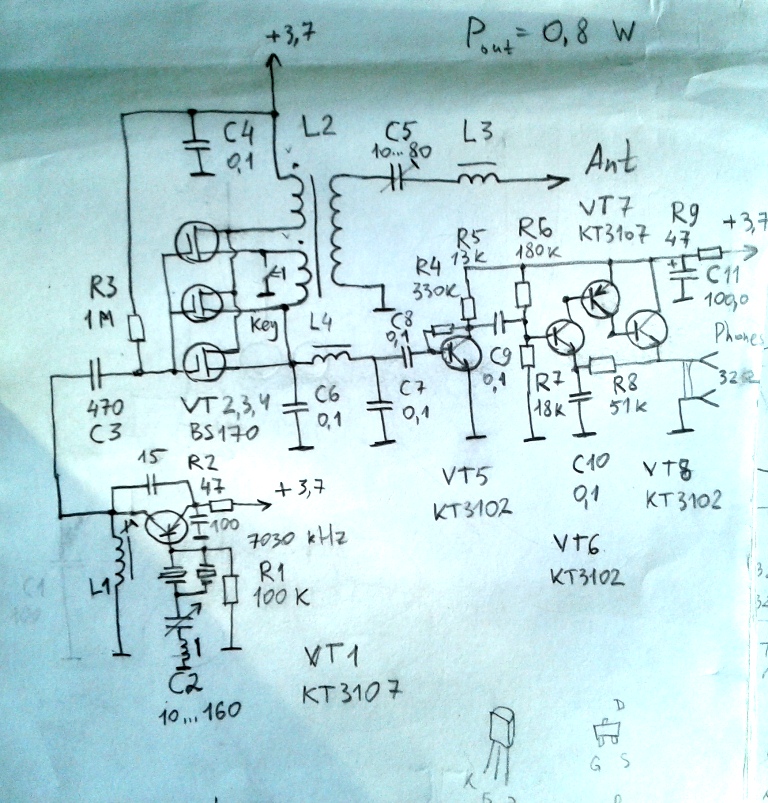 +3,7
Pout = 0,8 W
C4
0,1
L2
C5
10...80
L3
Ant
VT7
KT3107
R9
47
+3,7
R5
13K
R6
180K
R4
330K
+
C11
100,0
R3
1M
Key
L4
C8
0,1
C9
0,1
Phones
470
C3
VT2,3,4
BS170
C6
0,1
C7
0,1
R7
18K
R8
51K
15
R2
47
+3,7
100
7030 kHz
VT5
KT3102
C10
0,1
VT8
KT3102
VT6
KT3102
L1
R1
100 K
C1
100
C2
10...160
VT1
KT3107
D
G S
K